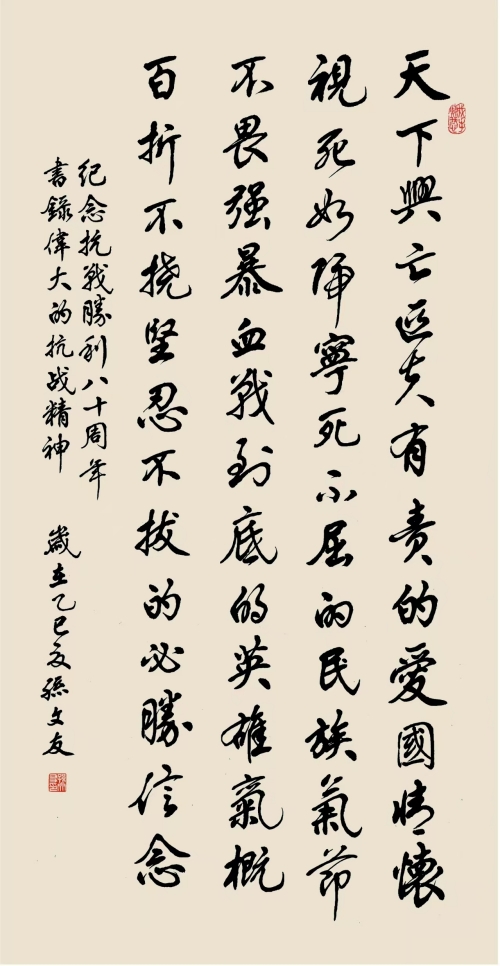 天下興亡匹夫有责的愛國情懷
視死如歸寧死不屈的民族氣节
不畏强暴血戰到底的英雄氣概
百折不挠坚忍不拔的必勝信念
纪念抗戰勝利八十周年
書錄偉大的抗战精神
歲在乙巳夏孫文友